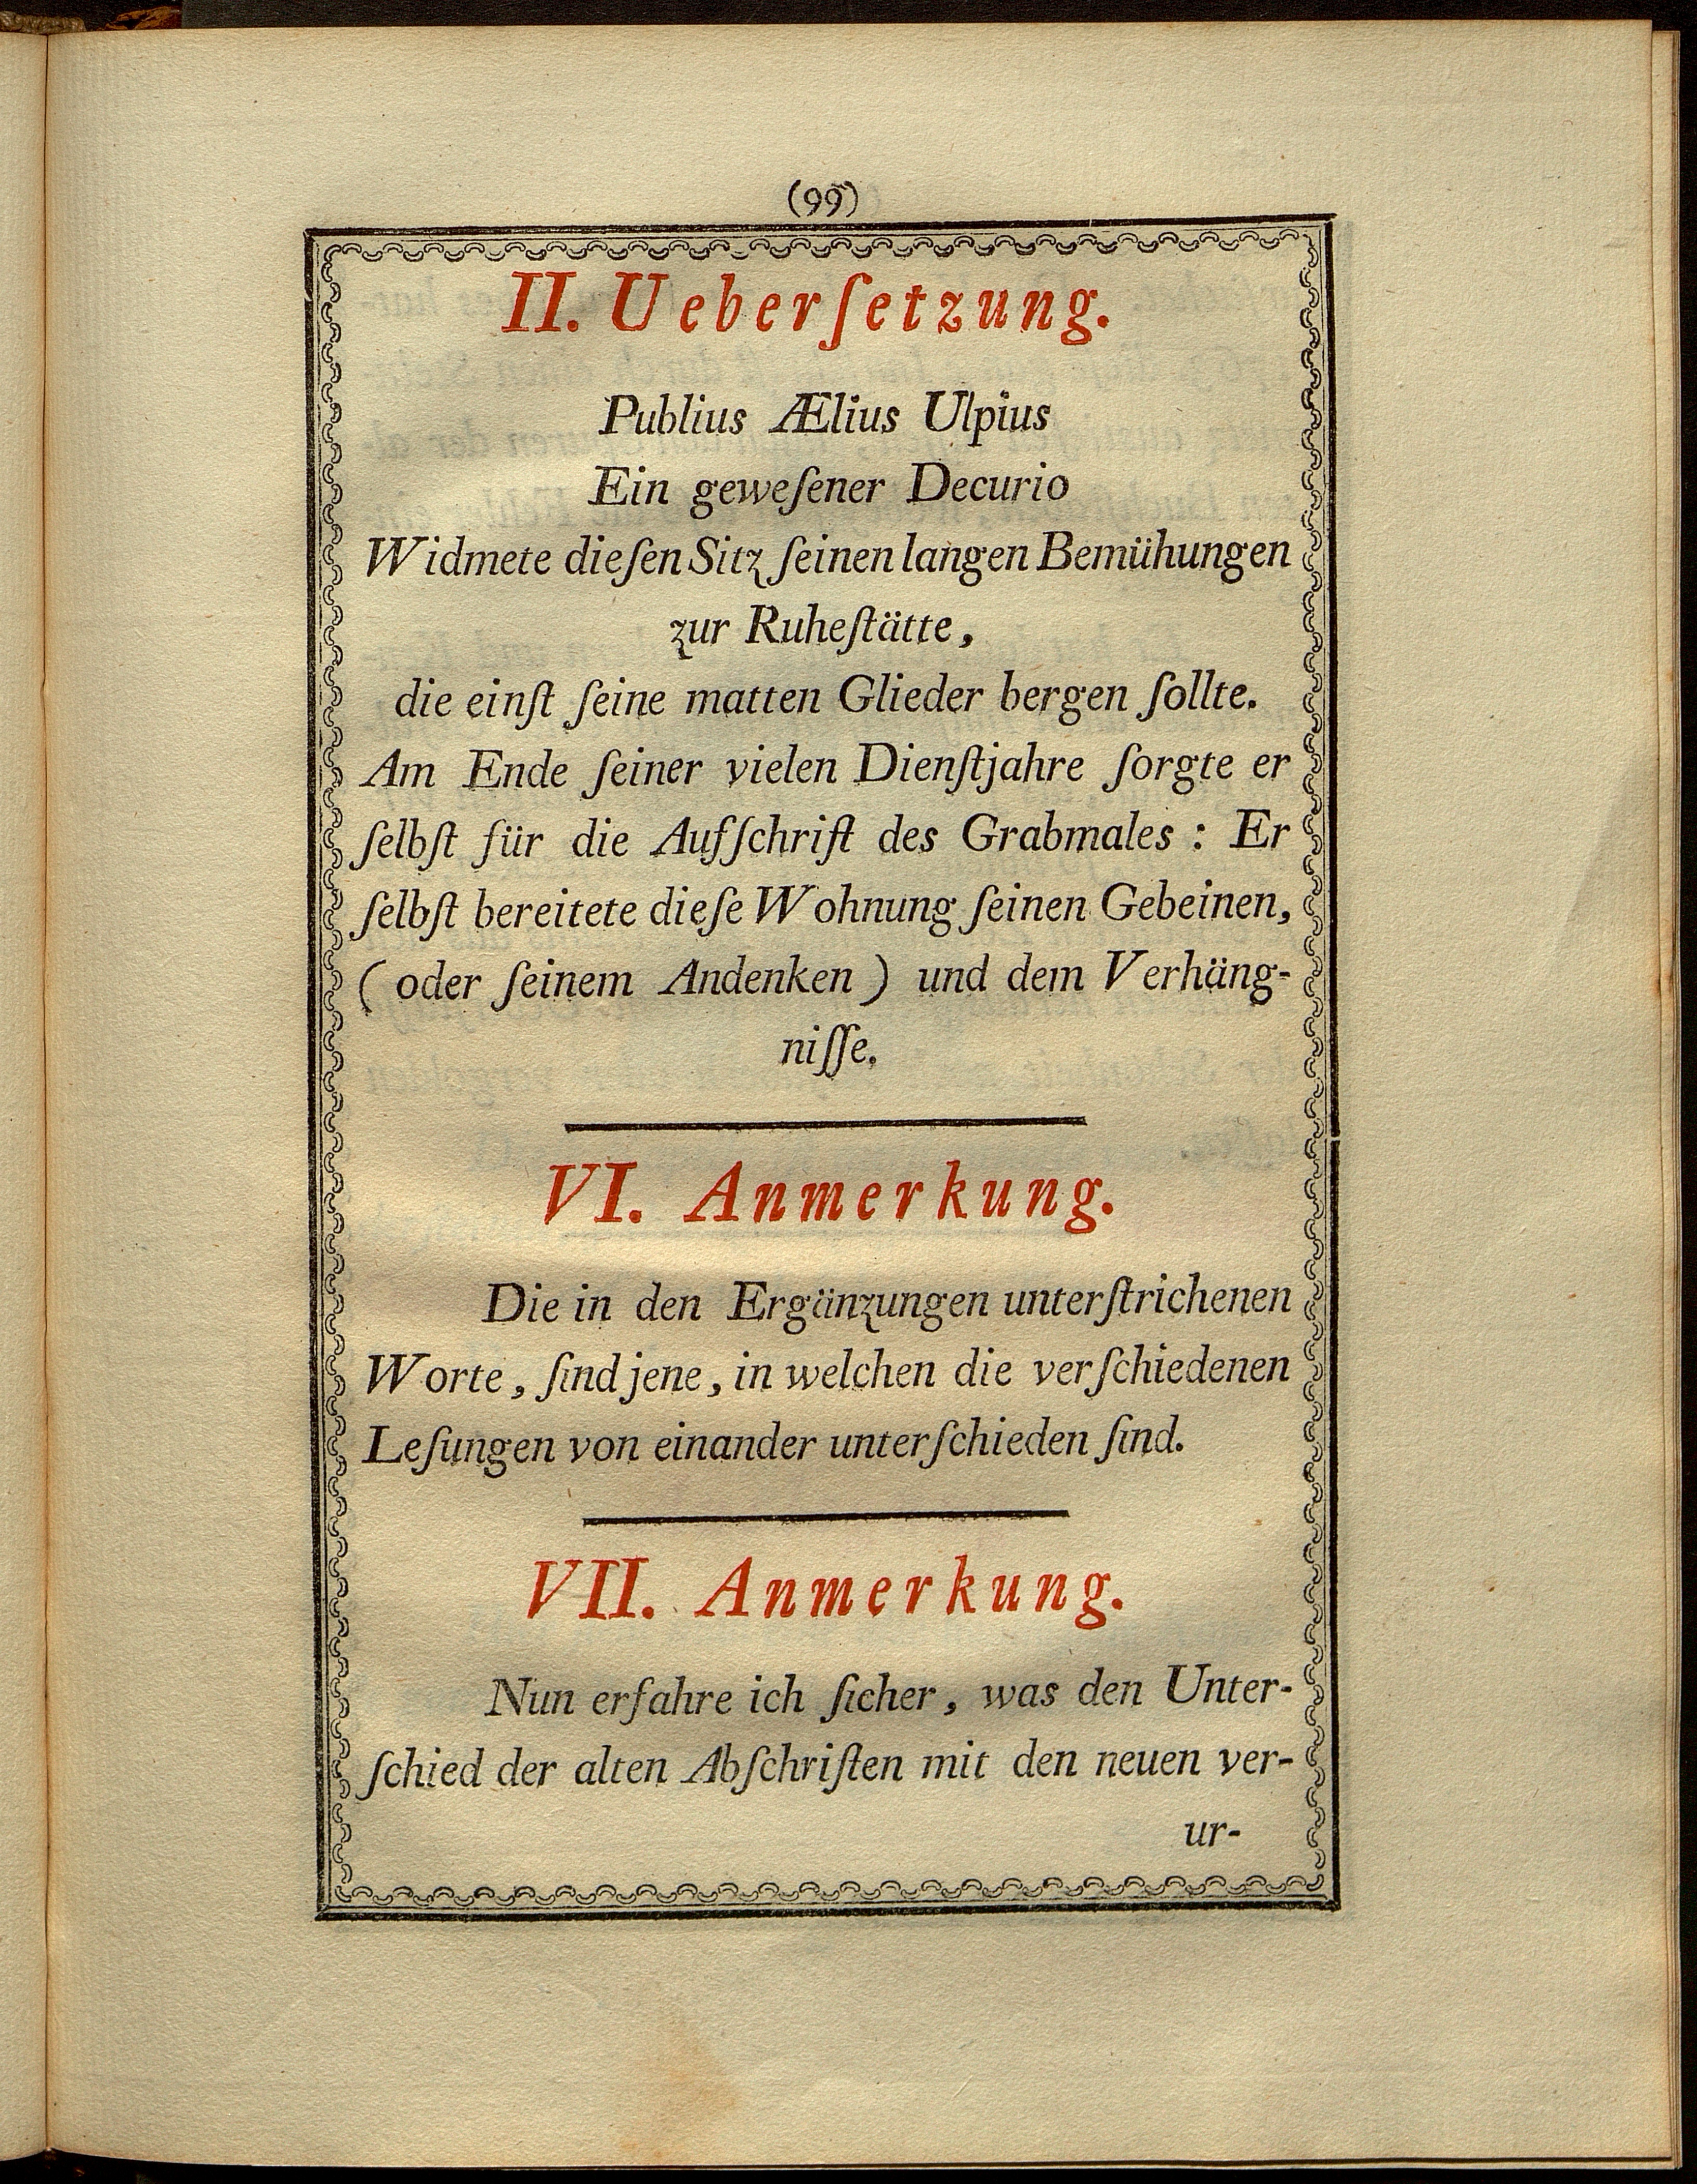 (99)
II. Ueberſetzung.
Publius Ælius Ulpius
Ein geweſener Decurio
Widmete dieſen Sitz ſeinen langen Bemühungen
zur Ruheſtätte,
die einſt ſeine matten Glieder bergen ſollte.
Am Ende ſeiner vielen Dienſtjahre ſorgte er
ſelbſt für die Aufſchrift des Grabmales : Er
ſelbſt bereitete dieſe Wohnung ſeinen Gebeinen,
( oder ſeinem Andenken ) und dem Verhäng-
niſſe.
VI. Anmerkung.
Die in den Ergänzungen unterſtrichenen
Worte, ſind jene, in welchen die verſchiedenen
Leſungen von einander unterſchieden ſind.
VII. Anmerkung.
Nun erfahre ich ſicher, was den Unter-
ſchied der alten Abſchriften mit den neuen ver-
ur-